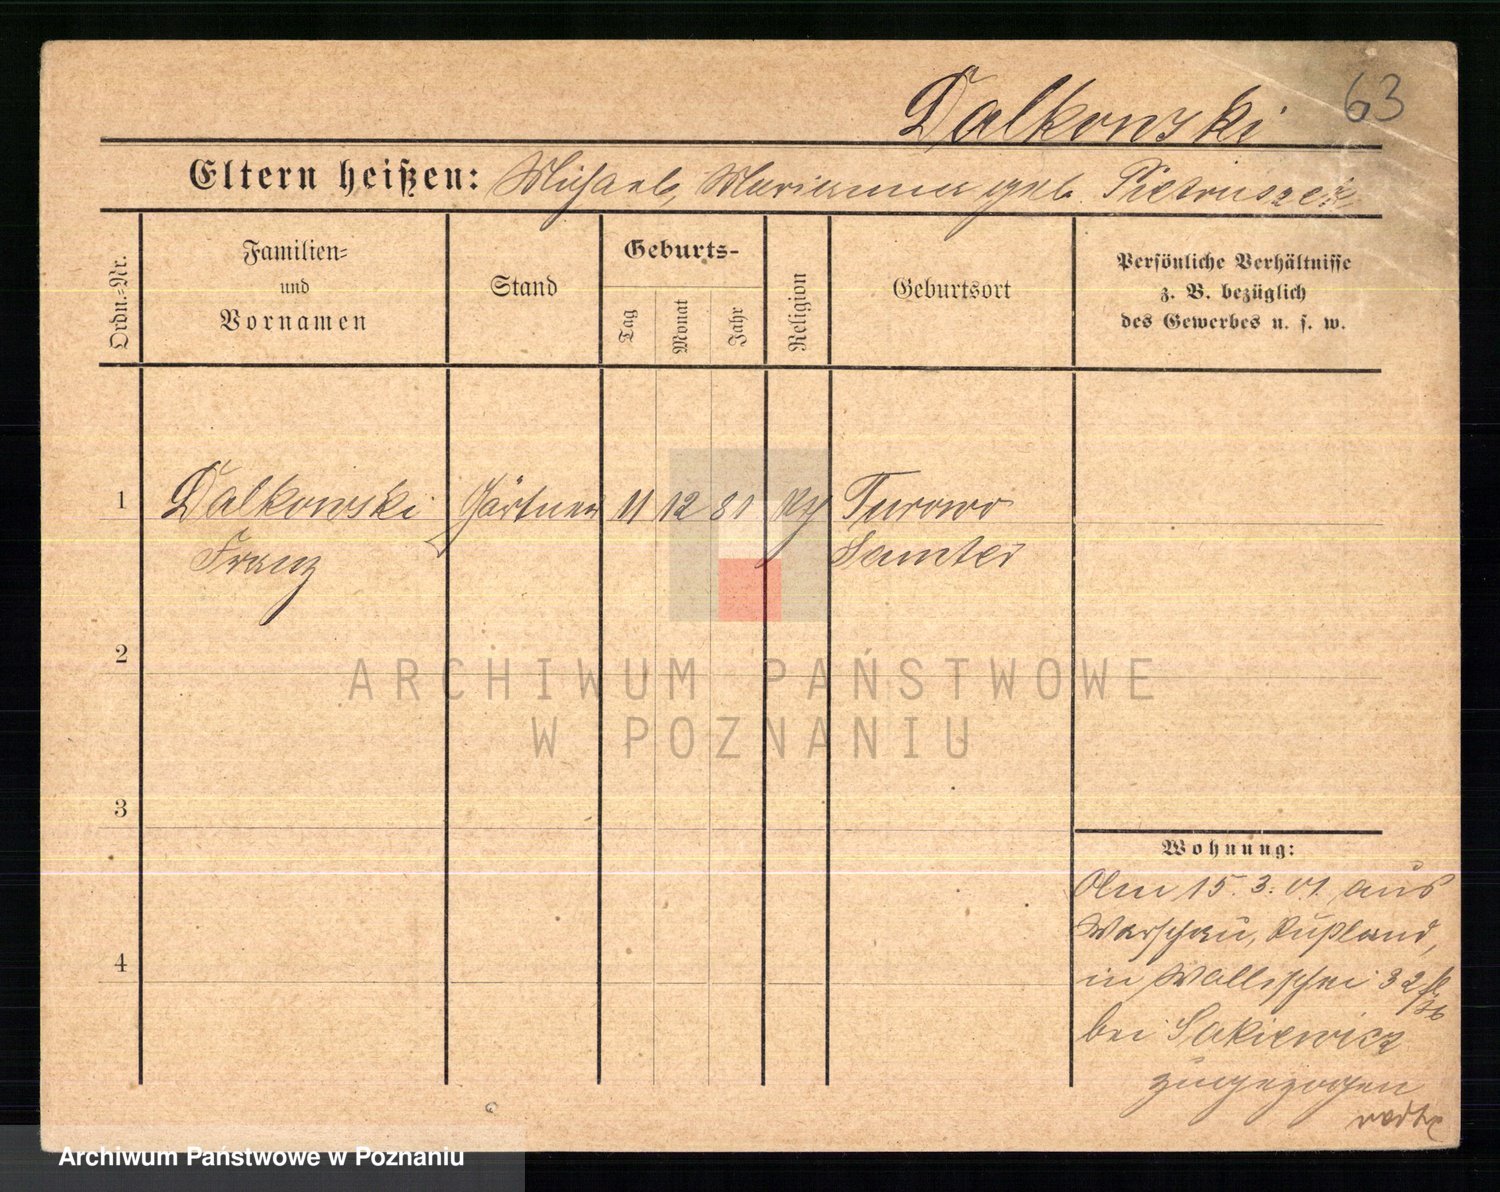 63
Dalkowski
Eltern heißen: Michael, Marianna geb.
Ordn.-Nr.
Familien-
und
Vornamen
Stand
Geburts-
Tag
Monat
Jahr
Religion
Geburtsort
Persönliche Verhältnisse
z. B. bezüglich
des Gewerbes u. s. w.
1 Dalkowski Gärtner 11 12 81 Turowo
Franz Samter
2
ARCHIWUM PAŃSTWOWE
W POZNANIU
3
4
Wohnung:
Am 15.3.01 aus
Warschau, Rußland,
in Wallischei 32
bei Sakiewicz
zugezogen
Archiwum Państwowe w Poznaniu